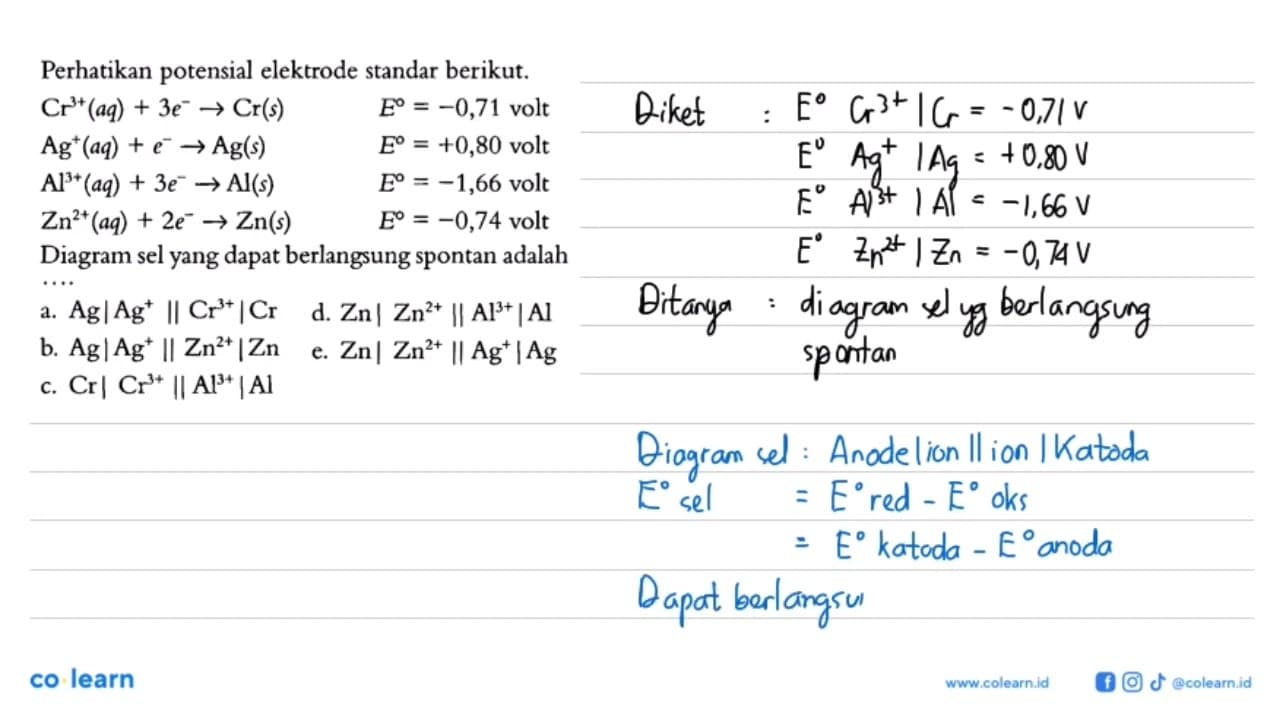 Perhatikan potensial elektrode standar berikut.
Cr³⁺(aq) + 3e⁻ → Cr(s) E° = −0,71 volt
Ag⁺(aq) + e⁻ → Ag(s) E° = +0,80 volt
Al³⁺(aq) + 3e⁻ → Al(s) E° = −1,66 volt
Zn²⁺(aq) + 2e⁻ → Zn(s) E° = −0,74 volt
Diagram sel yang dapat berlangsung spontan adalah
....
a. Ag| Ag⁺ || Cr³⁺ |Cr d. Zn| Zn²⁺ || Al³⁺ | Al
b. Ag| Ag⁺ || Zn²⁺ |Zn e. Zn| Zn²⁺ || Ag⁺ | Ag
c. Cr| Cr³⁺ || Al³⁺ | Al
Diket : E° Cr³⁺ | Cr = -0,71 V
E° Ag⁺ | Ag = +0,80 V
E° Al³⁺ | Al = -1,66 V
E° Zn²⁺ | Zn = -0,74 V
Ditanya : diagram sel yg berlangsung
spontan
Diagram sel : Anode | ion || ion | Katoda
E° sel = E° red - E° oks
= E° katoda - E° anoda
Dapat berlangsu
co learn
www.colearn.id @colearn.id